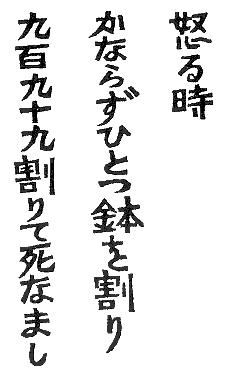 怒る時
かならずひとつ鉢を割り
九百九十九割りて死なまし